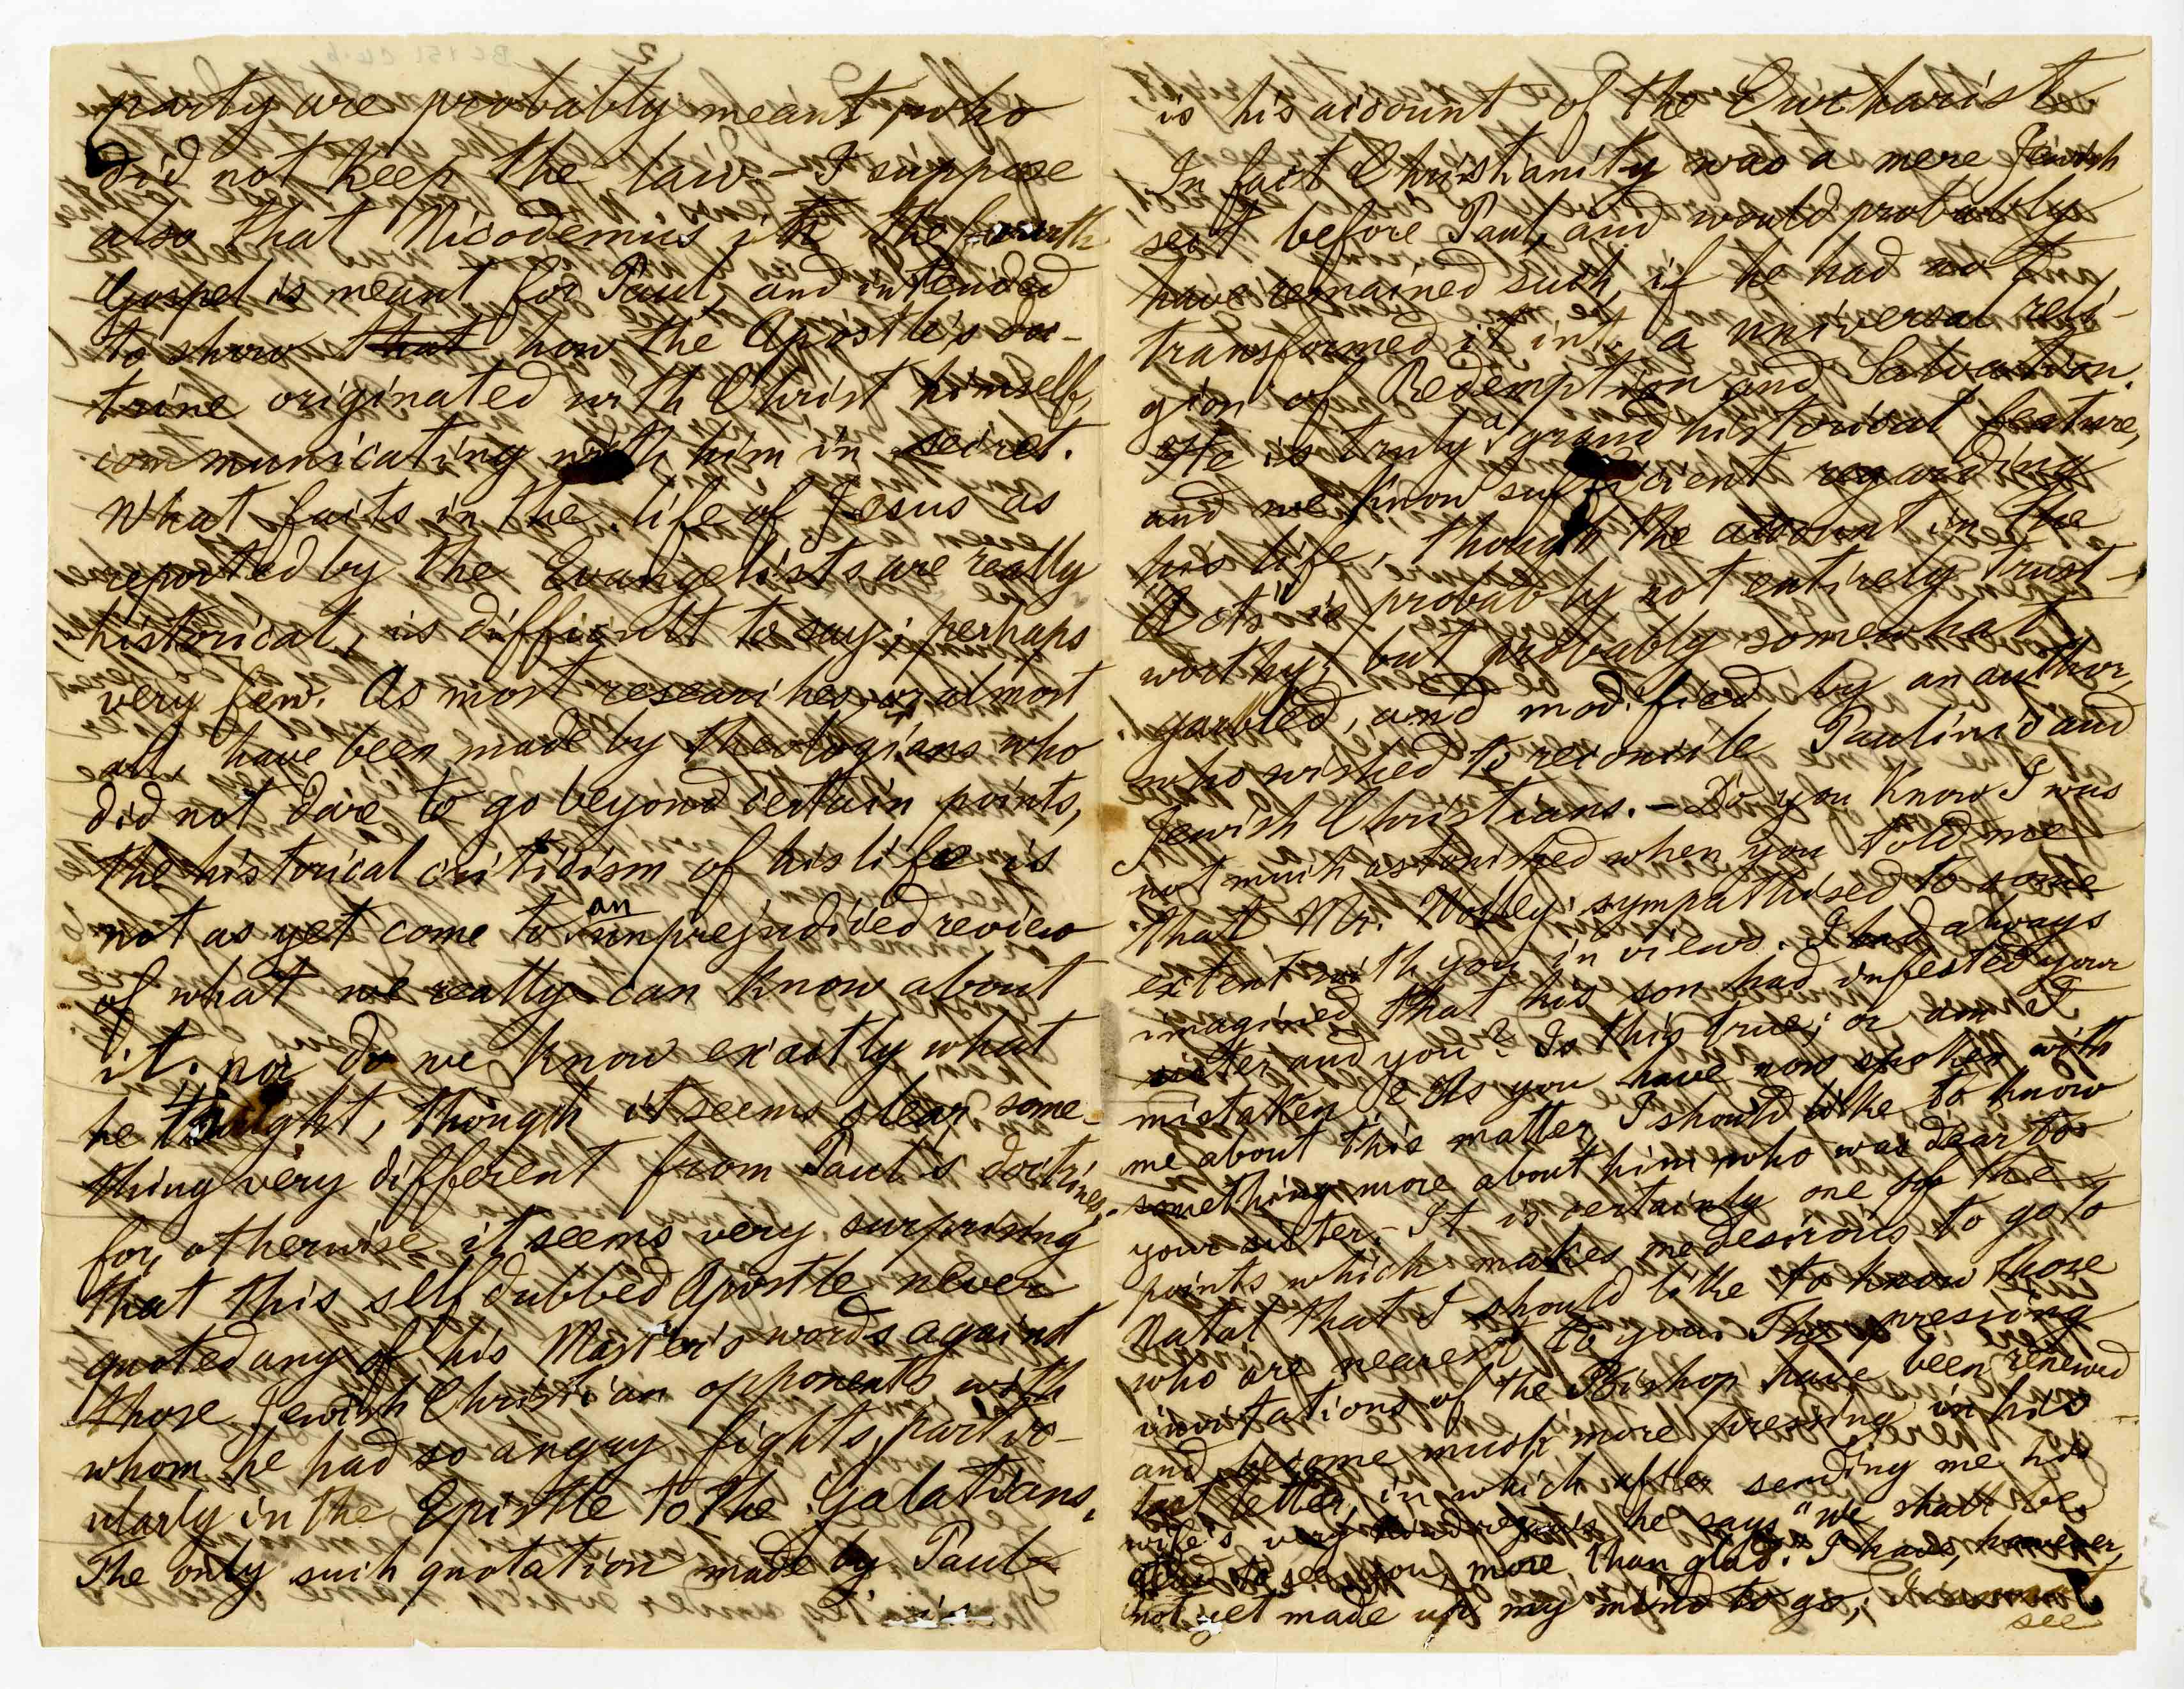 party are probably meant, who
did not keep the law – I suppose
also that Nicodemus in the fourth
Gospel is meant for Paul, and intended
to show that how the Apostle's doc-
trine originated with Christ himself,
communicating with him in secret.
What facts in the life of Jesus as
reported by the Evangelists are really
historical, is difficult to say; perhaps
very few. As most researches, or almost
all, have been made by theologians who
did not dare to go beyond certain points,
the historical criticism of his life is
not as yet come to an unprejudiced review
of what we really can know about
it. nor do we know exactly what
he taught, though it seems clear some-
thing very different from Paul's doctrines,
for, otherwise it seems very surprising
that this self dubbed Apostle never
quoted any of his Master's words against
those Jewish Christian opponents with
whom he had so angry fights, partic-
ularly in the Epistle to the Galatians.
The only such quotation made by Paul
is
is his account of the Eucharist
In fact Christianity was a mere Jewish
sect before Paul, and would probably
have remained such, if he had not
transformed it into a universal reli-
gion of Redemption and Salvation.
He is truly a grand historical feature,
and we know sufficient regarding
his life, though the account in the
Acts is probably not entirely trust-
worthy, but probably somewhat
garbled, and modified by an author,
who wished to reconcile Paulinic and
Jewish Christians. – Do you know I was
not much astonished when you told me
that Mr. sympathised to some
extent with you in views. I had always
imagined that his son had infested your
sister and you? Is this true; or am I
mistaken? As you have now spoken with
me about this matter, I should like to know
something more about him, who was dear to
your sister. – It is certainly one of the
points which makes me desirous to go to
Natal that I should like to know those
who are nearest to you. The pressing
invitations of the Bishop have been renewed
and become much more pressing in his
last letter, in which after sending me his
wife's very kind regards he says "We shall be
glad to see you, more than glad." I have, however,
not yet made up my mind to go;
see